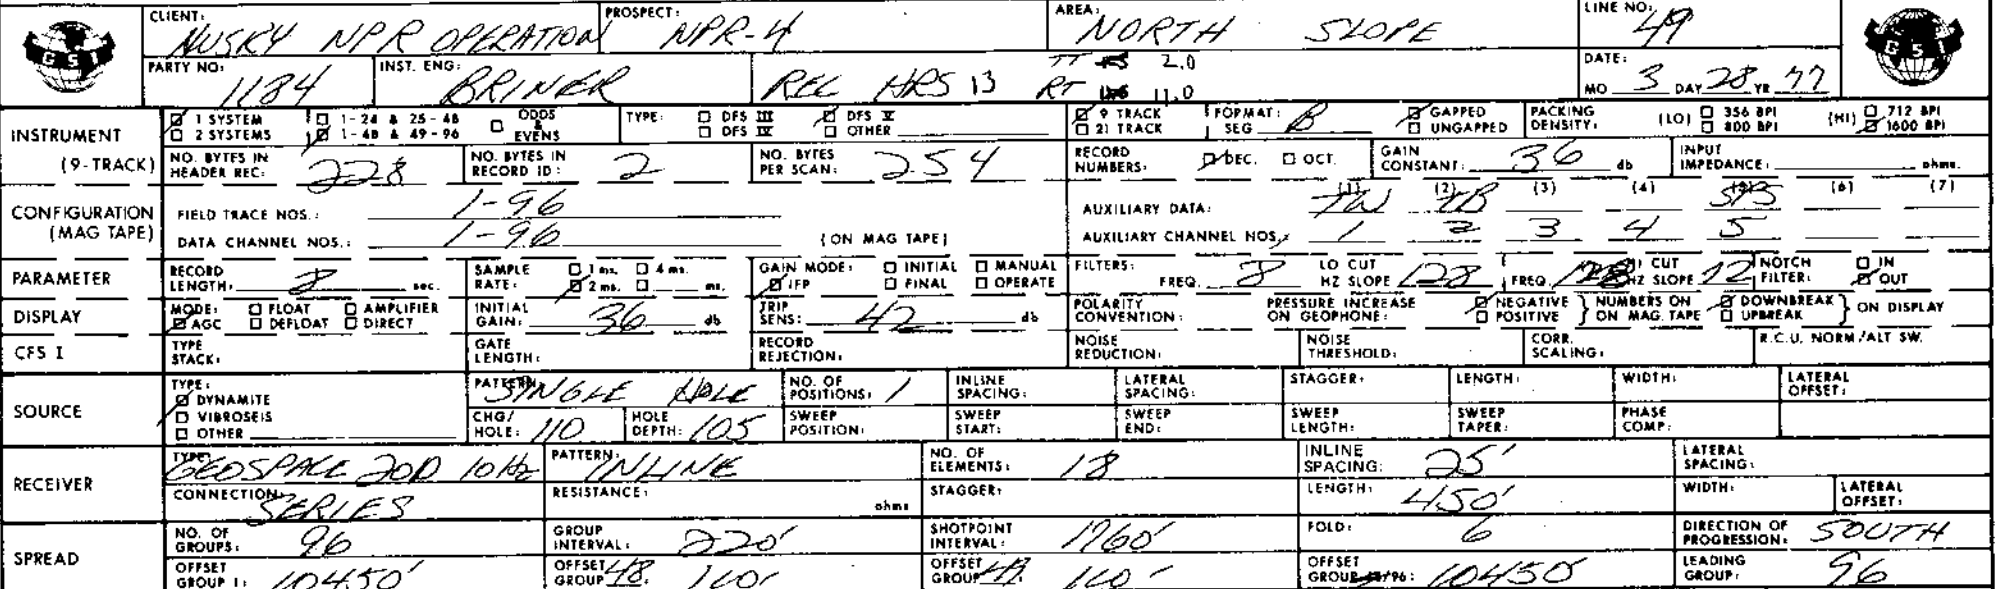 CLIENT: HUSKY NPR OPERATION PROSPECT: NPR-4 AREA: NORTH SLOPE LINE NO: 49
GSI GSI
PARTY NO: 1184 INST. ENG: BRINER REC HRS 13 TT 2.0 RT 11.0 DATE: MO 3 DAY 28 YR 77
INSTRUMENT (9-TRACK)
☑ 1 SYSTEM ☐ 1-24 & 25-48 ☐ ODDS & EVENS TYPE: ☐ DFS III ☑ DFS V ☑ 9 TRACK FORMAT: SEG B ☑ GAPPED PACKING DENSITY: (LO) ☐ 356 BPI (HI) ☐ 712 BPI
☐ 2 SYSTEMS ☑ 1-48 & 49-96 ☐ DFS IV ☐ OTHER ☐ 21 TRACK ☐ UNGAPPED ☐ 800 BPI ☑ 1600 BPI
NO. BYTES IN HEADER REC: 228 NO. BYTES IN RECORD ID: 2 NO. BYTES PER SCAN: 254 RECORD NUMBERS: ☑ DEC. ☐ OCT. GAIN CONSTANT: 36 db INPUT IMPEDANCE: ohms.
CONFIGURATION (MAG TAPE)
(1) (2) (3) (4) (5) (6) (7)
FIELD TRACE NOS.: 1-96 AUXILIARY DATA: TW TB
DATA CHANNEL NOS.: 1-96 (ON MAG TAPE) AUXILIARY CHANNEL NOS. 1 2 3 4 5
PARAMETER RECORD LENGTH: 8 sec. SAMPLE RATE: ☐ 1 ms. ☐ 4 ms. ☑ 2 ms. ☐ ms. GAIN MODE: ☐ INITIAL ☐ MANUAL ☑ IFP ☐ FINAL ☐ OPERATE FILTERS: FREQ. 8 LO CUT HZ SLOPE FREQ. 128 HI CUT HZ SLOPE 72 NOTCH FILTER: ☐ IN ☑ OUT
DISPLAY MODE: ☐ FLOAT ☐ AMPLIFIER ☑ AGC ☐ DEFLOAT ☐ DIRECT INITIAL GAIN: 36 db TRIP SENS: 42 db POLARITY CONVENTION: PRESSURE INCREASE ON GEOPHONE: ☑ NEGATIVE ☐ POSITIVE } NUMBERS ON ON MAG. TAPE ☑ DOWNBREAK ☐ UPBREAK } ON DISPLAY
CFS I TYPE STACK: GATE LENGTH: RECORD REJECTION: NOISE REDUCTION: NOISE THRESHOLD: CORR. SCALING: R.C.U. NORM/ALT SW.
SOURCE TYPE: ☑ DYNAMITE ☐ VIBROSEIS ☐ OTHER
PATTERN: SINGLE HOLE NO. OF POSITIONS: 1 INLINE SPACING: LATERAL SPACING: STAGGER: LENGTH: WIDTH: LATERAL OFFSET:
CHG/HOLE: 110 HOLE DEPTH: 105 SWEEP POSITION: SWEEP START: SWEEP END: SWEEP LENGTH: SWEEP TAPER: PHASE COMP:
RECEIVER
TYPE: GEOSPACE 20D 10Hz PATTERN: INLINE NO. OF ELEMENTS: 18 INLINE SPACING: 25' LATERAL SPACING:
CONNECTION: SERIES RESISTANCE: ohms STAGGER: LENGTH: 450' WIDTH: LATERAL OFFSET:
SPREAD
NO. OF GROUPS: 96 GROUP INTERVAL: 220' SHOTPOINT INTERVAL: 1760' FOLD: 6 DIRECTION OF PROGRESSION: SOUTH
OFFSET GROUP 1: 10450' OFFSET GROUP 48: 110' OFFSET GROUP 49: 110' OFFSET GROUP 48/96: 10450 LEADING GROUP: 96